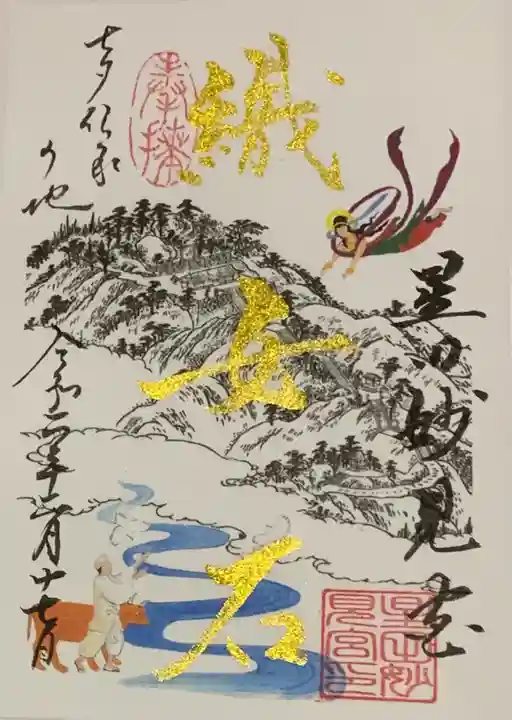 星田妙見宮
織女石
奉拝
七夕伝承
の地
令和二年十二月十七日
星田妙
見宮印